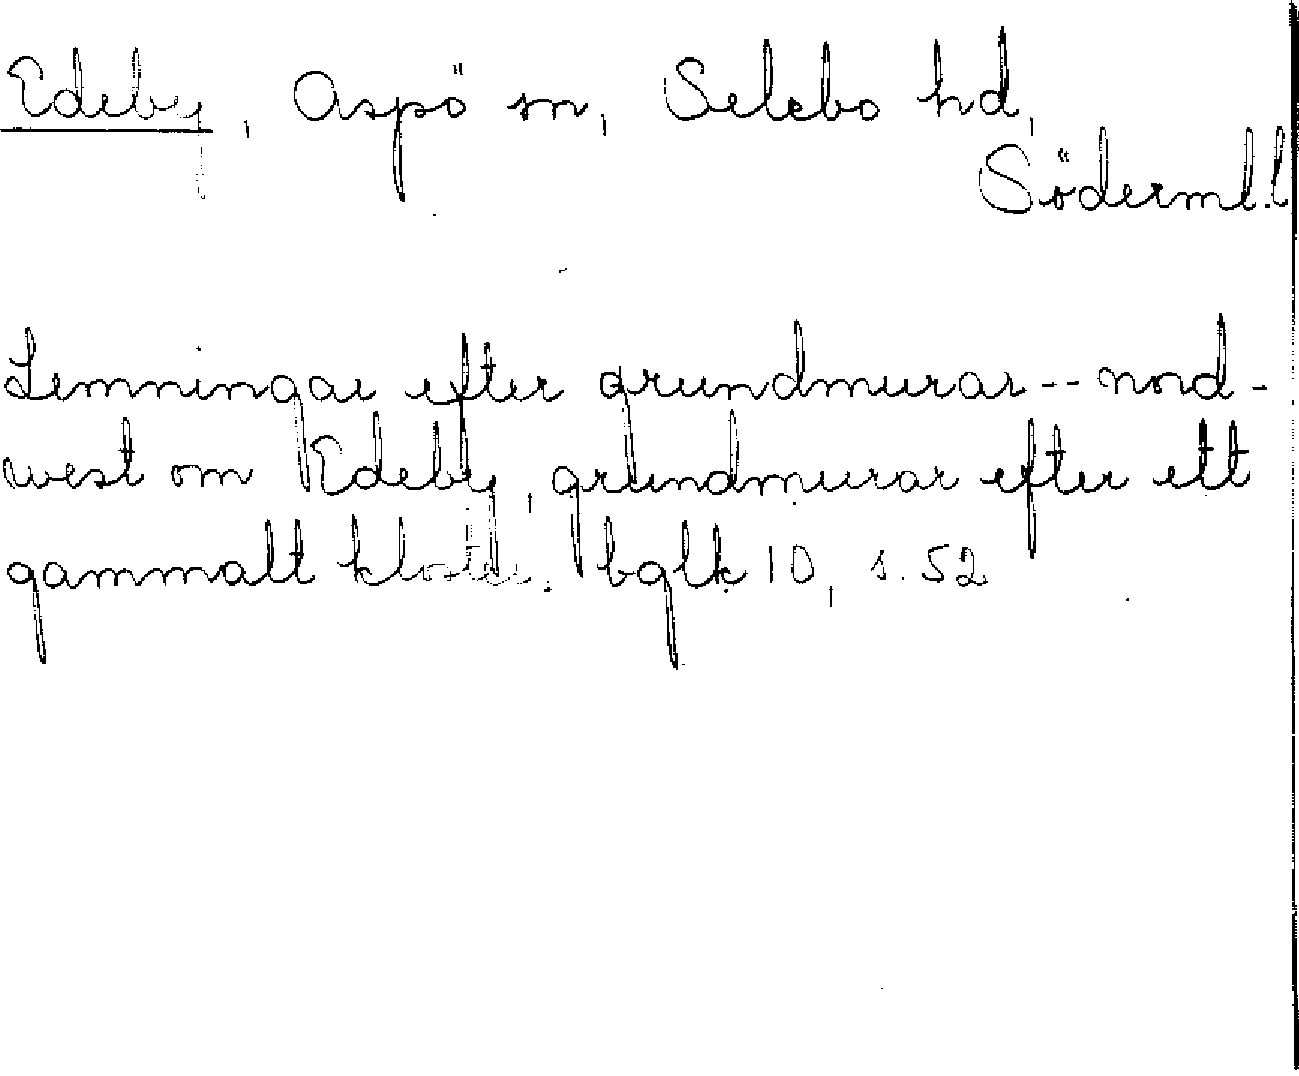 Edeby, Aspö sn, Selebo hd,
Söderml. l
Lemningar efter grundmurar -- nord-
west om Edeby, grundmurar efter ett
gammalt kloster. bglk 10, s. 52